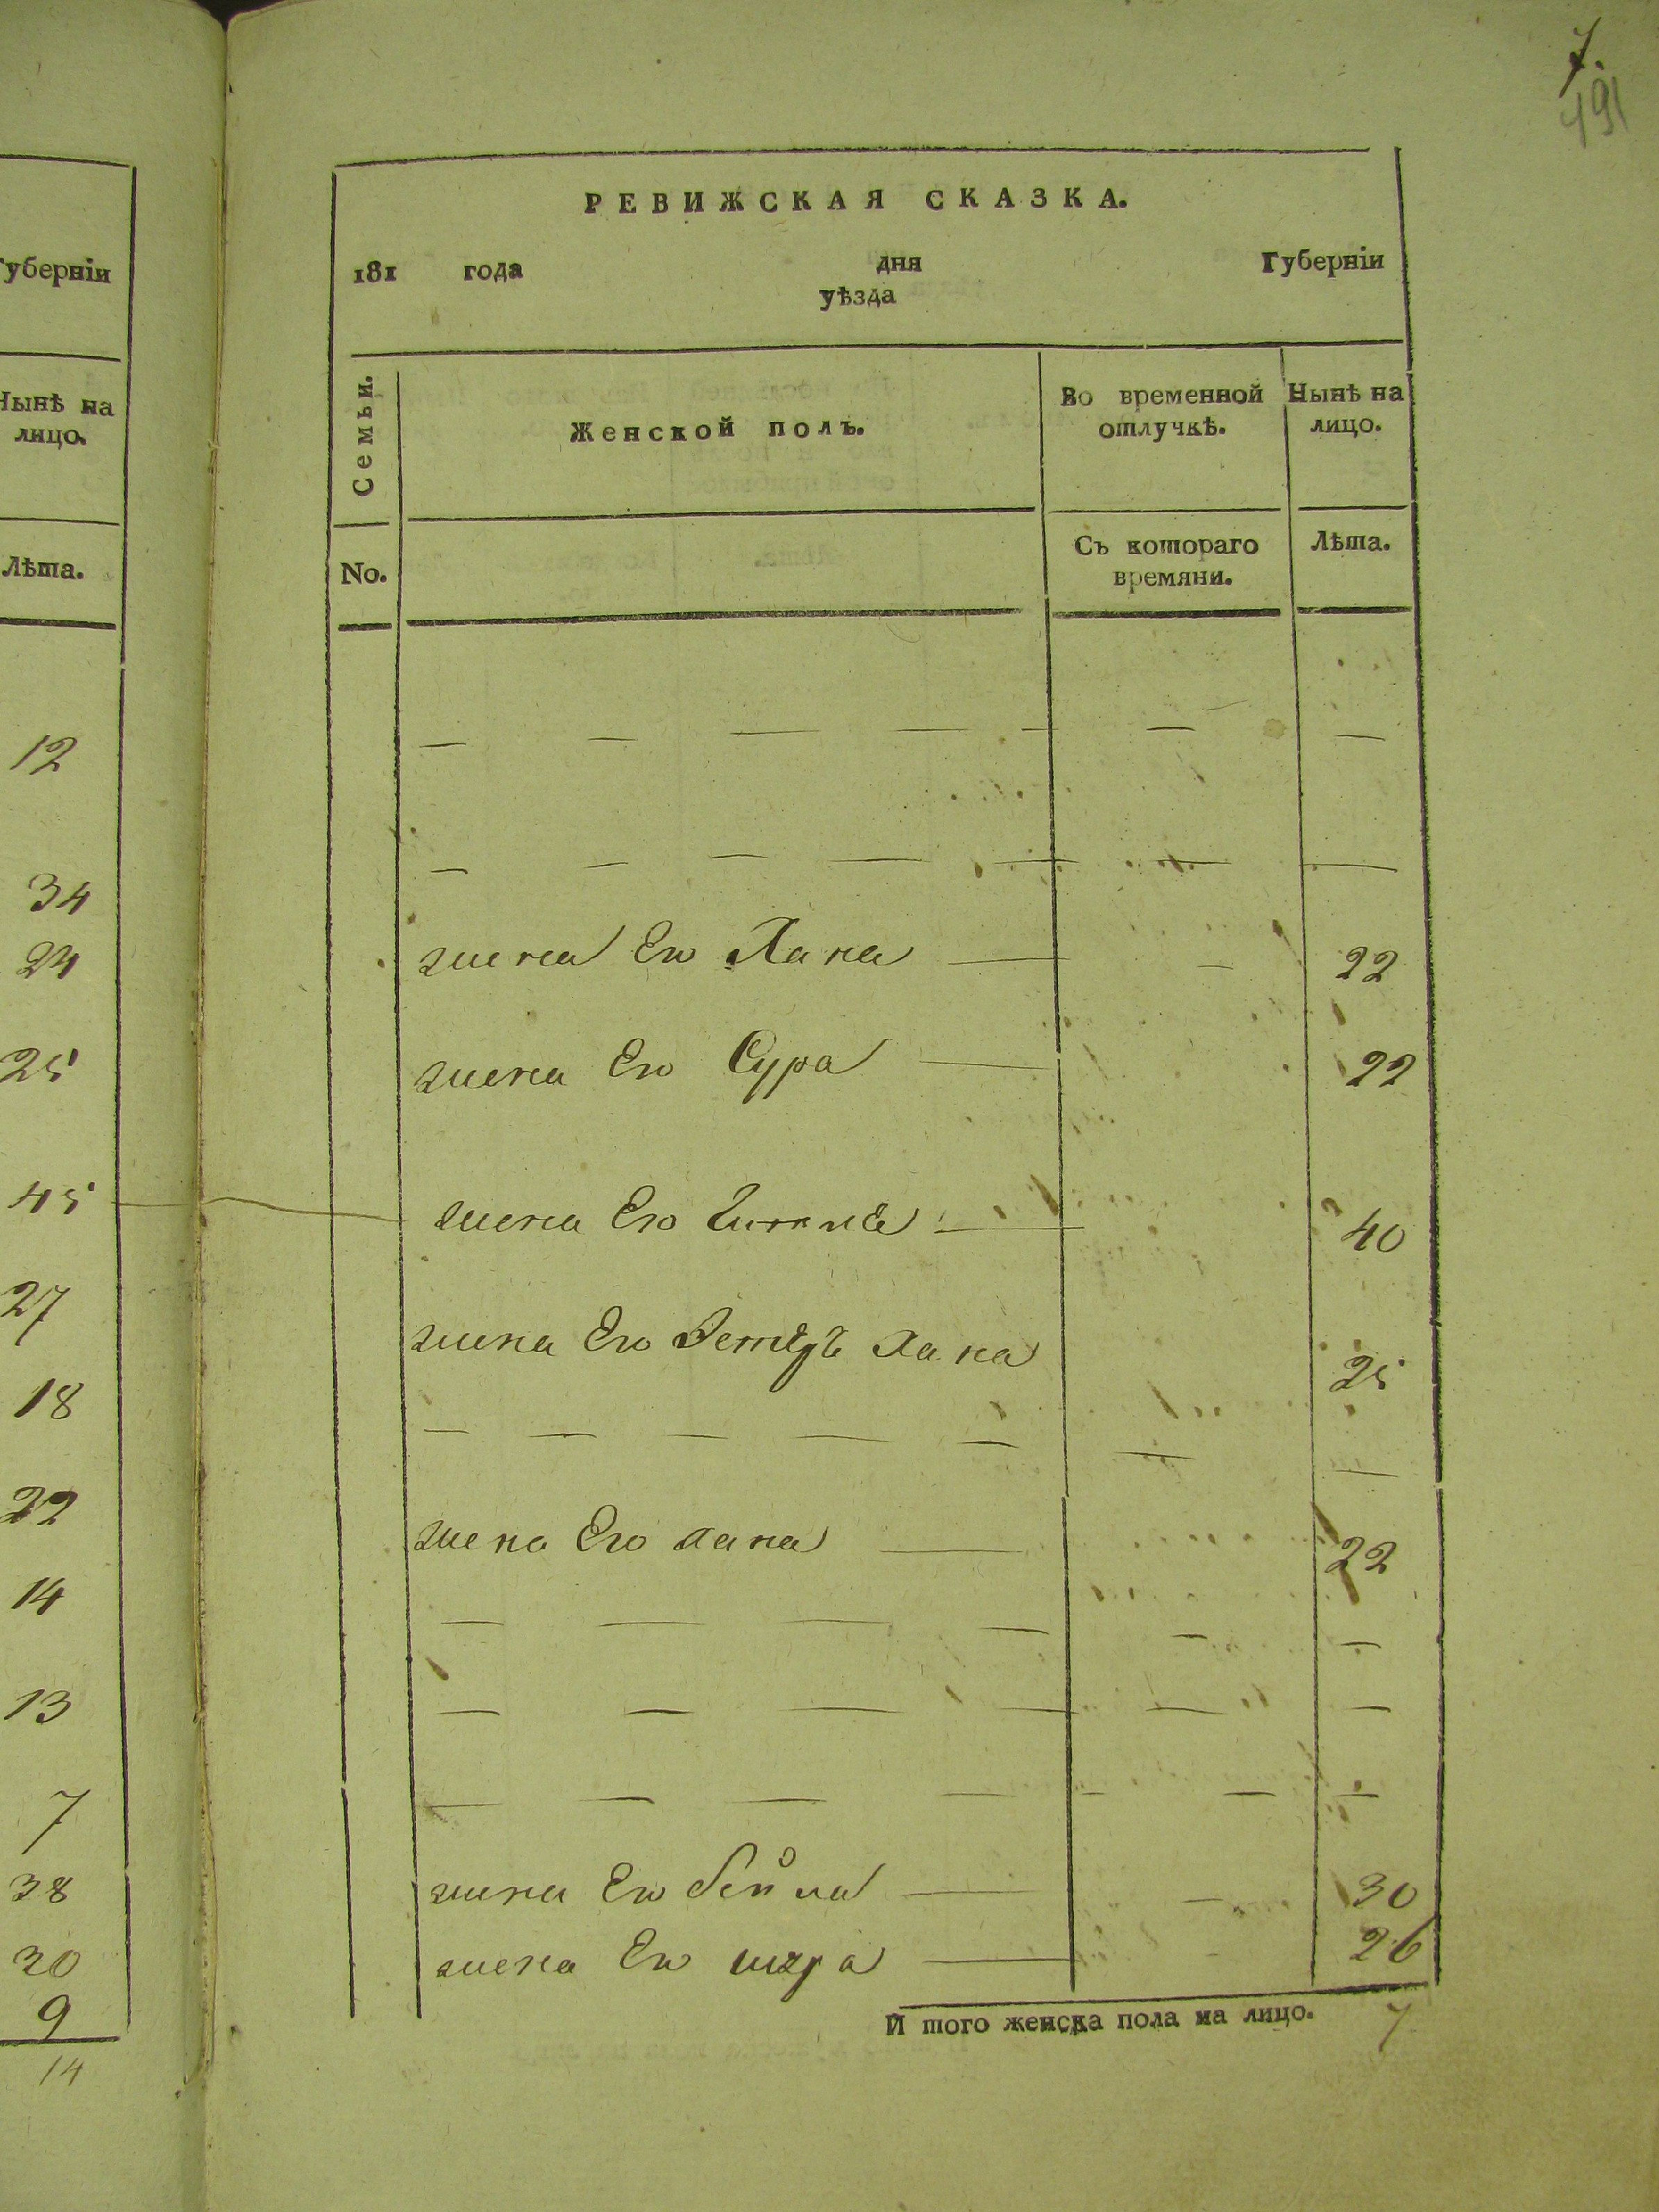 Губернїи
Нынѣ на
лицо.
Лѣта.
12
34
24
25
45
27
18
22
14
13
7
38
30
9
14
7.
491
РЕВИЖСКАЯ СКАЗКА.
181 года дня Губернїи
уѣзда
Семьи.
Женской полъ.
Во временной
отлучкѣ.
Нынѣ на
лицо.
No.
Съ котораго
времяни.
Лѣта.
— — — — — — —
— — — — — — —
жена Его Хана — — 22
жена Его Сура — 22
жена Его — 40
жена Его Хана 25
— — — — — — —
жена Его хана — 22
— — — — — —
— — — — — —
— — — — — — —
жена Его — — 30
жена Его — 26
И того женска пола на лицо. 7